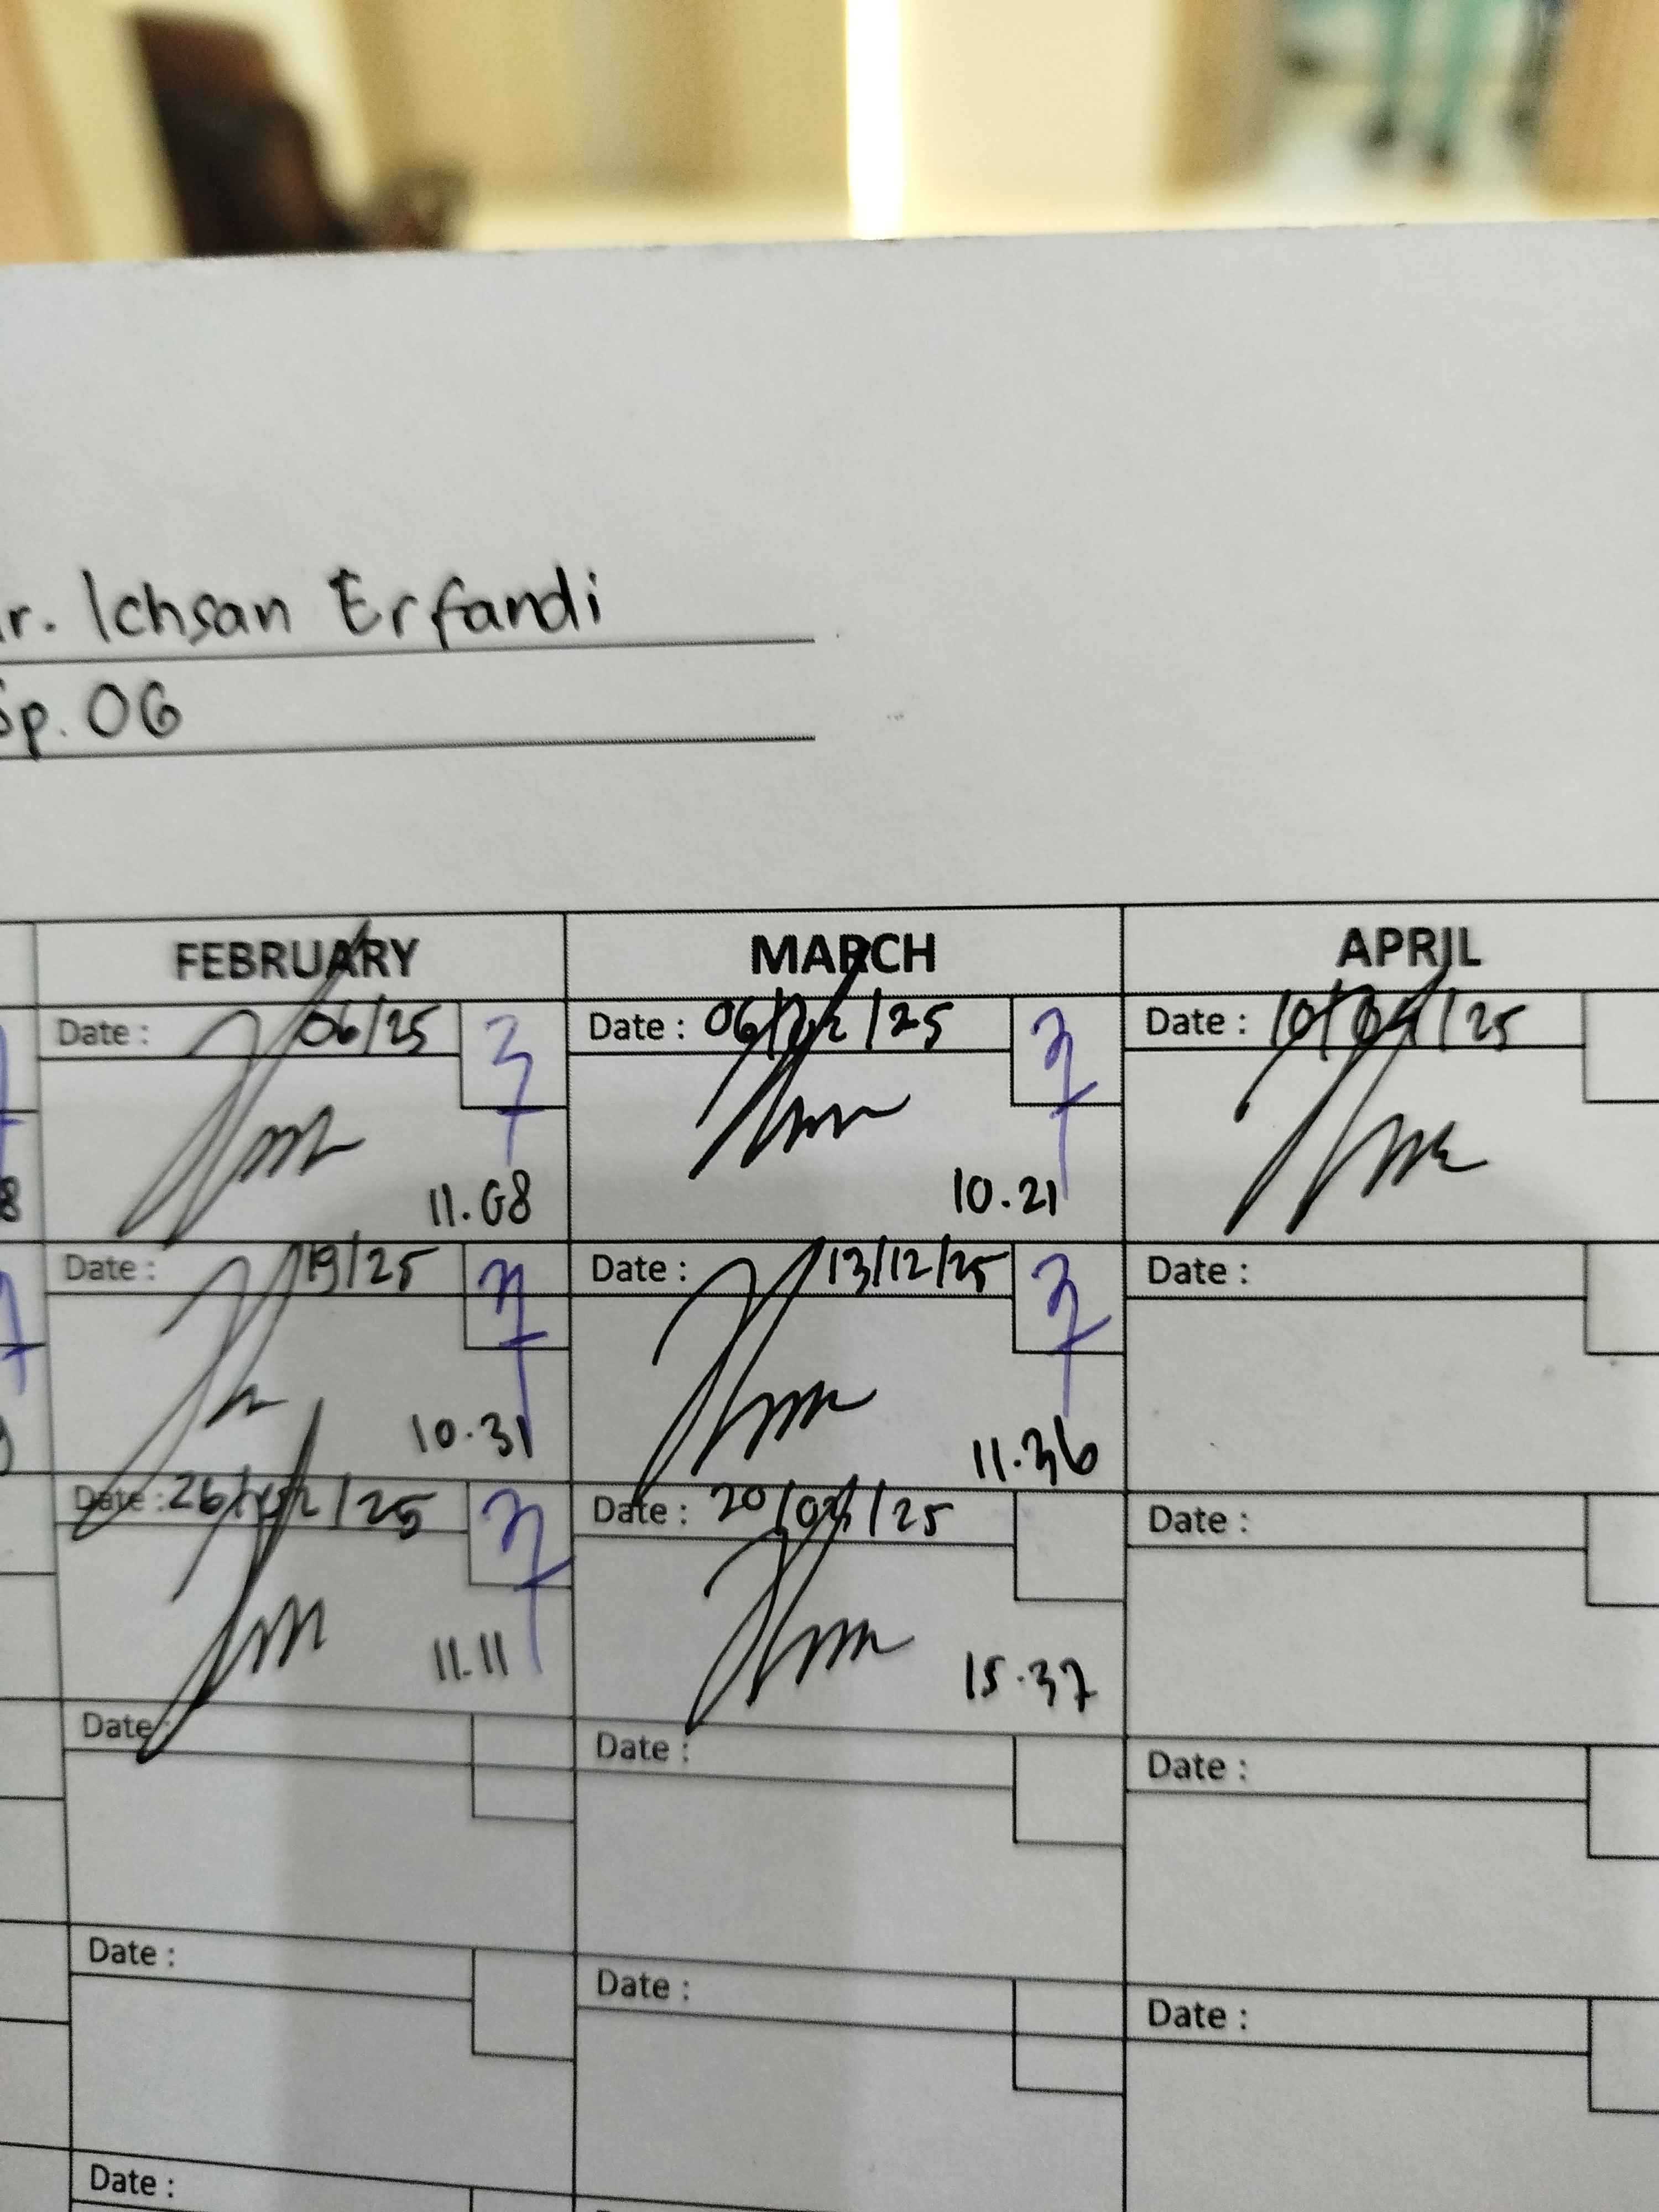 r. Ichsan Erfandi
Sp. OG
FEBRUARY MARCH APRIL
Date : 06/25 Date : 06/ /25 Date : 10/04/25
11.08 10.21
Date : 19/25 Date : 13/12/25 Date :
10.31 11.36
Date : 26/ /25 Date : 20/03/25 Date :
11.11 15.37
Date : Date : Date :
Date : Date : Date :
Date :